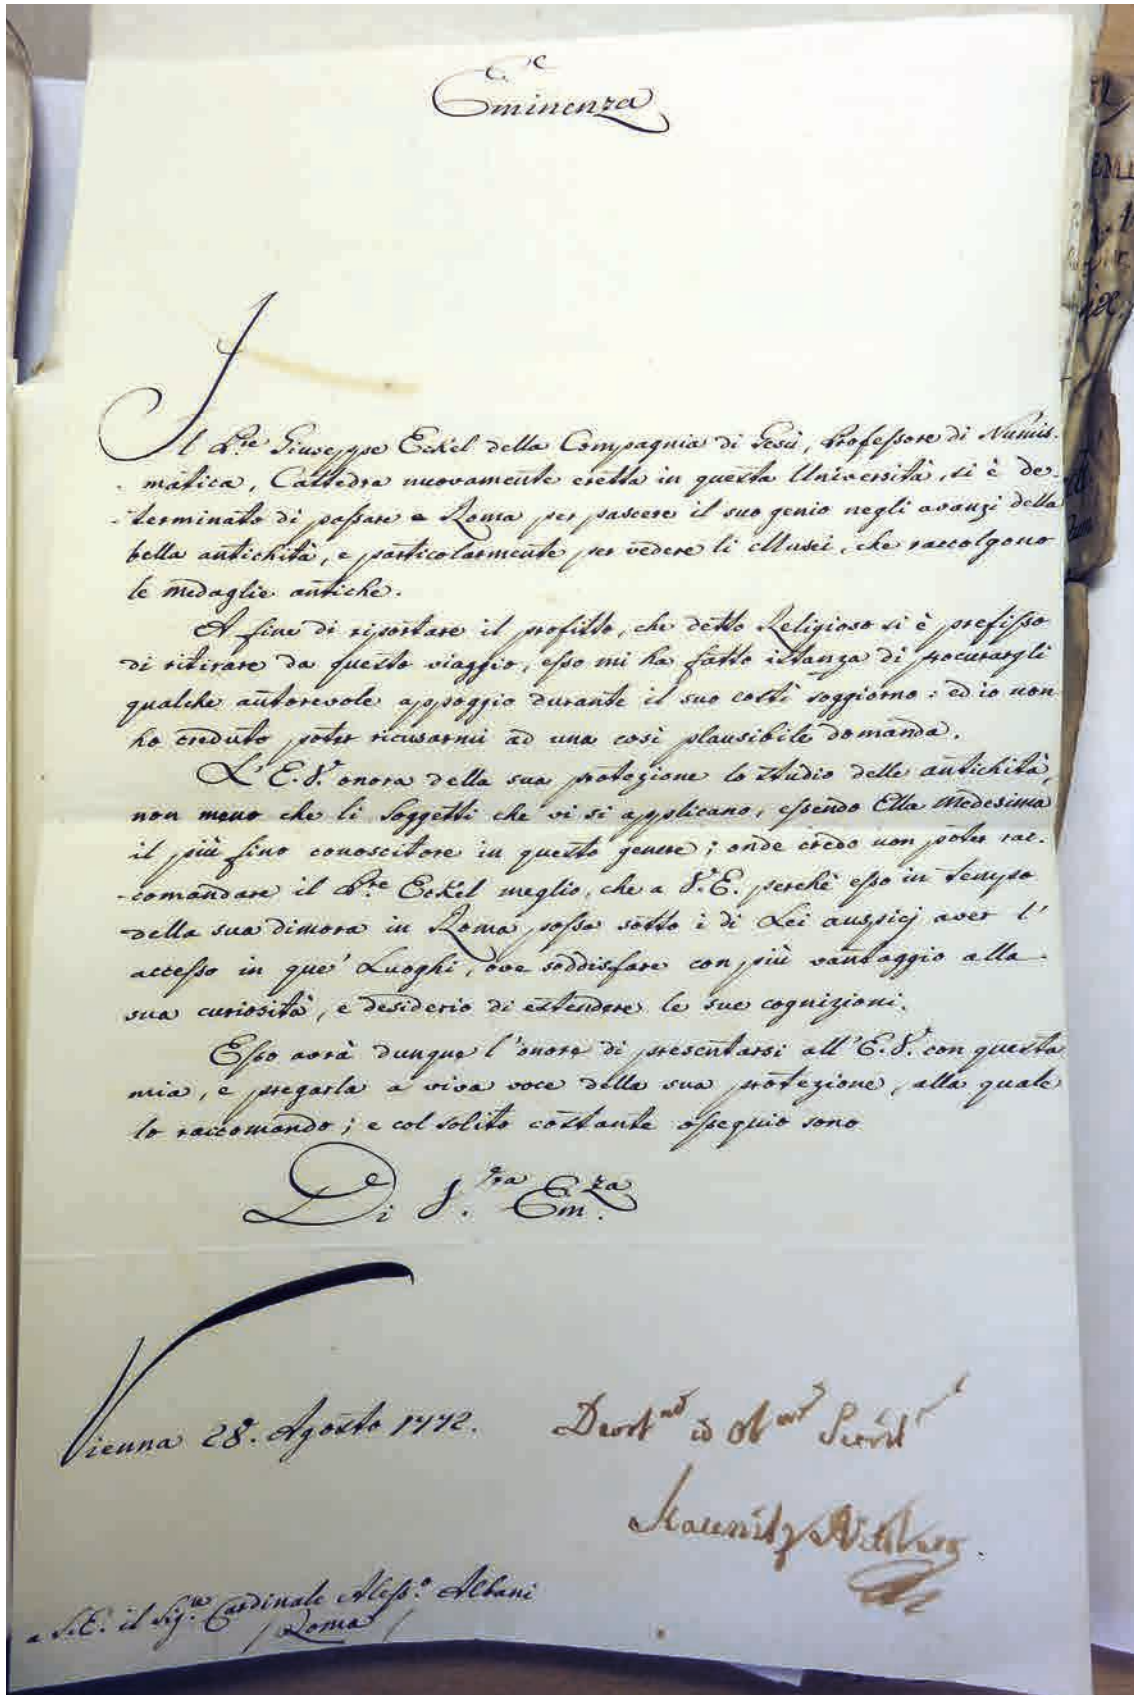 Eminenza
Il Pre Giuseppe Eckel della Compagnia di Gesù, Professore di Numis-
matica, Cattedra nuovamente eretta in questa Università, si è de-
-terminato di passare a Roma per pascere il suo genio negli avanzi della
bella antichità, e particolarmente per vedere li Musei, che raccolgono
le medaglie antiche.
A fine di riportare il profitto, che detto Religioso si è prefisso
di ritirare da questo viaggio, esso mi ha fatto istanza di procurargli
qualche autorevole appoggio durante il suo costì soggiorno: ed io non
ho creduto poter ricusarmi ad una così plausibile domanda.
L'E.V. onora della sua protezione lo studio delle antichità,
non meno che li Soggetti che vi si applicano, essendo Ella medesima
il più fino conoscitore in questo genere; onde credo non poter rac-
-comandare il Pre Eckel meglio, che a V.E. perchè esso in tempo
della sua dimora in Roma possa sotto i di Lei auspicj aver l'
accesso in que' Luoghi, ove soddisfare con più vantaggio alla
sua curiosità, e desiderio di estendere le sue cognizioni.
Esso avrà dunque l'onore di presentarsi all'E.V. con questa
mia, e pregarla a viva voce della sua protezione, alla quale
lo raccomando; e col solito costante ossequio sono
Di V.tra Em.za
Vienna 28. Agosto 1772.
Kaunitz Rittberg.
a S.E. il Sig.re Cardinale Aless.o Albani
/ Roma /